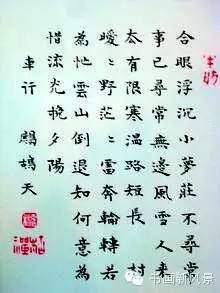 合眼浮沉小夢莊不尋常
事已尋常無邊風雪人来
去有限寒溫路短長村
曖〻野茫〻奔輪轉若
為忙雲山倒退知何意為
惜流光挽夕陽
車行鷓鴣天
书画新风景